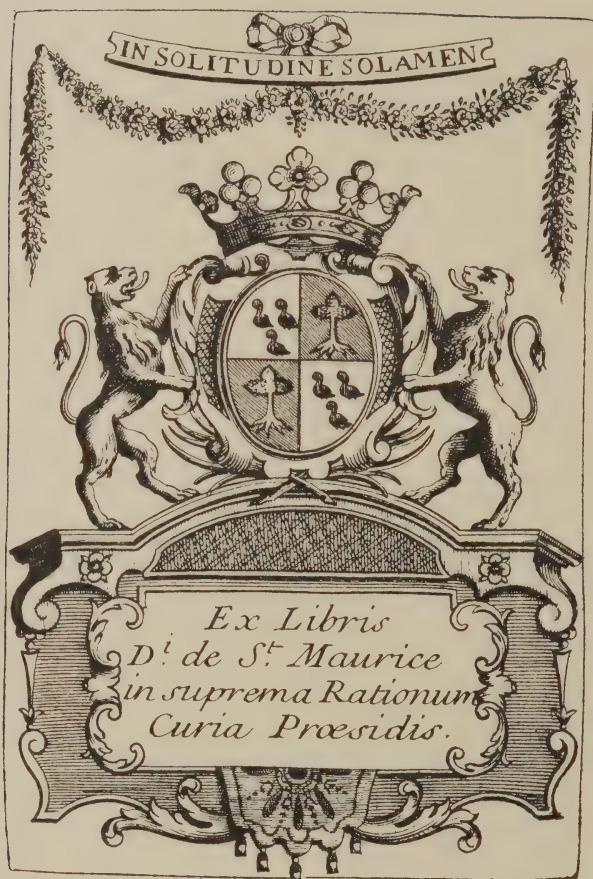 IN SOLITUDINE SOLAMEN
Ex Libris
D.t de S.t Maurice
in suprema Rationum
Curia Præsidis.